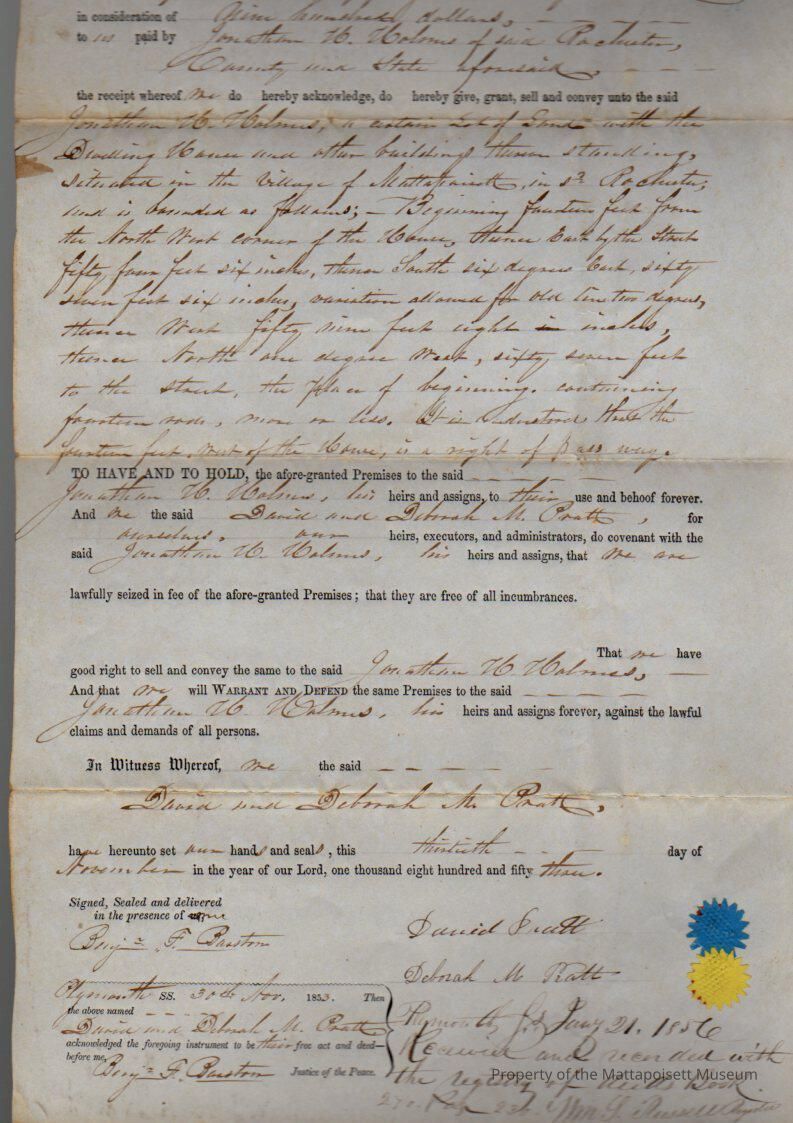 in consideration of Nine hundred dollars,
to us paid by Jonathan H. Holmes of said Rochester,
County and State aforesaid,
the receipt whereof we do hereby acknowledge, do hereby give, grant, sell and convey unto the said
Jonathan H. Holmes, a certain Lot of Land with the
Dwelling House and other buildings thereon standing,
situated in the Village of Mattapoisett, in sd Rochester,
and is bounded as follows; – Beginning fourteen feet from
the North West corner of the House, thence East by the Street
fifty four feet six inches, thence South six degrees East, sixty
seven feet six inches, variation allowed for old line two degrees,
thence West fifty nine feet eight inches,
thence North one degree West, sixty seven feet
to the street, the place of beginning. containing
fourteen rods, more or less. It is understood that the
fourteen feet, west of the House, is a right of pass way.
TO HAVE AND TO HOLD, the afore-granted Premises to the said
Jonathan H. Holmes, his heirs and assigns, to their use and behoof forever.
And we the said David and Deborah M. Pratt, for
ourselves, our heirs, executors, and administrators, do covenant with the
said Jonathan H. Holmes, his heirs and assigns, that we are
lawfully seized in fee of the afore-granted Premises; that they are free of all incumbrances.
That we have
good right to sell and convey the same to the said Jonathan H Holmes,
And that we will WARRANT AND DEFEND the same Premises to the said
Jonathan H. Holmes, his heirs and assigns forever, against the lawful
claims and demands of all persons.
In Witness Whereof, we the said
David and Deborah M. Pratt,
have hereunto set our hands and seals, this thirtieth day of
November in the year of our Lord, one thousand eight hundred and fifty three.
Signed, Sealed and delivered
in the presence of
Benj.n F. Barstow
David Pratt
Deborah M Pratt
Plymouth SS. 30th Nov. 1853. Then
the above named
David and Deborah M. Pratt
acknowledged the foregoing instrument to be their free act and deed—
before me,
Benj.n F. Barstow Justice of the Peace.
Plymouth Ss Jany 21. 1856
Received and recorded with
the registry of deeds Book
270. Page 236. Wm. S. Russell Register
Property of the Mattapoisett Museum